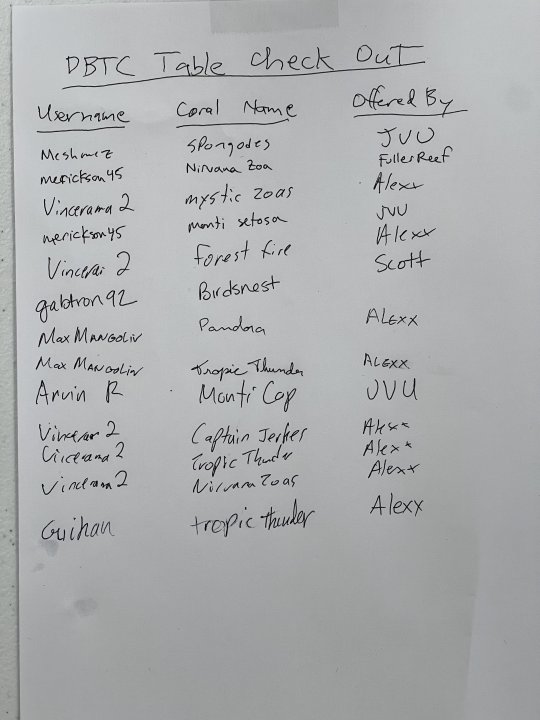 DBTC Table Check Out
Username Coral Name Offered By
Meshmez Spongodes JVU
merickson45 Nirvana Zoa FullerReef
Vincerama 2 mystic zoas Alexx
merickson45 monti setosa JVU
Vincerai 2 forest fire Alexx
gabtron92 Birdsnest Scott
Max Mangoliv Pandora Alexx
Max Mangoliv Tropic Thunder Alexx
Arvin R Monti Cap JVU
Vincerar 2 Captain Jerker Alexx
Vincerama 2 Tropic Thunder Alexx
Vincerama 2 Nirvana Zoas Alexx
Guihan tropic thunder Alexx